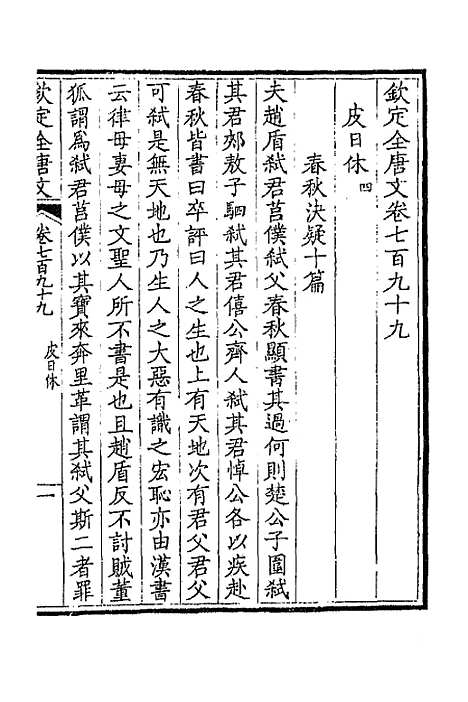 欽定全唐文卷七百九十九
皮日休 四
春秋決疑十篇
夫趙盾弒君莒僕弒父春秋顯書其過何則楚公子圍弒
其君郟敖子駟弒其君僖公齊人弒其君悼公各以疾赴
春秋皆書曰卒評曰人之生也上有天地次有君父君父
可弒是無天地也乃生人之大惡有識之宏恥亦由漢書
云律母妻母之文聖人所不書是也且趙盾反不討賊董
狐謂為弒君莒僕以其寶來奔里革謂其弒父斯二者罪
欽定全唐文 卷七百九十九 皮日休 一